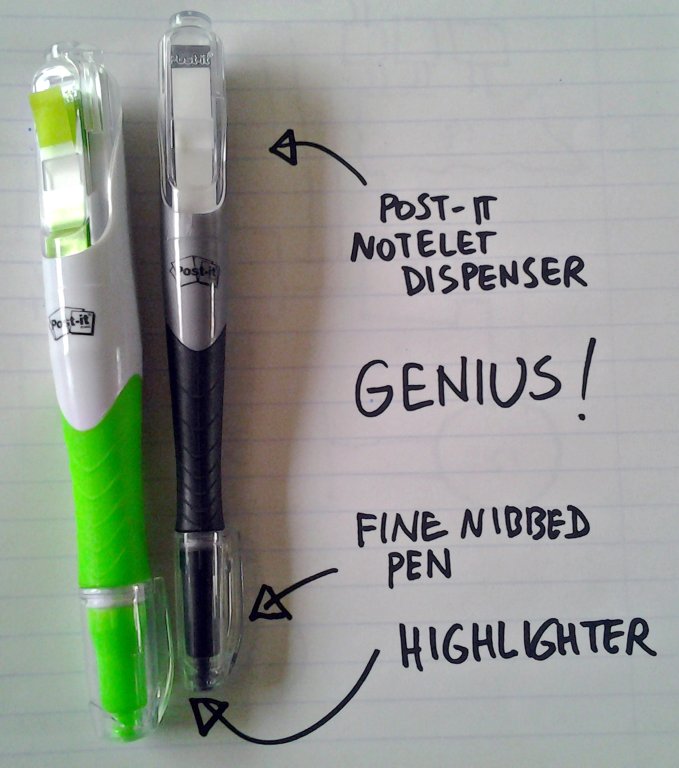 Post-it
Post-it
Post-it
POST-IT
NOTELET
DISPENSER
GENIUS!
FINE NIBBED
PEN
HIGHLIGHTER